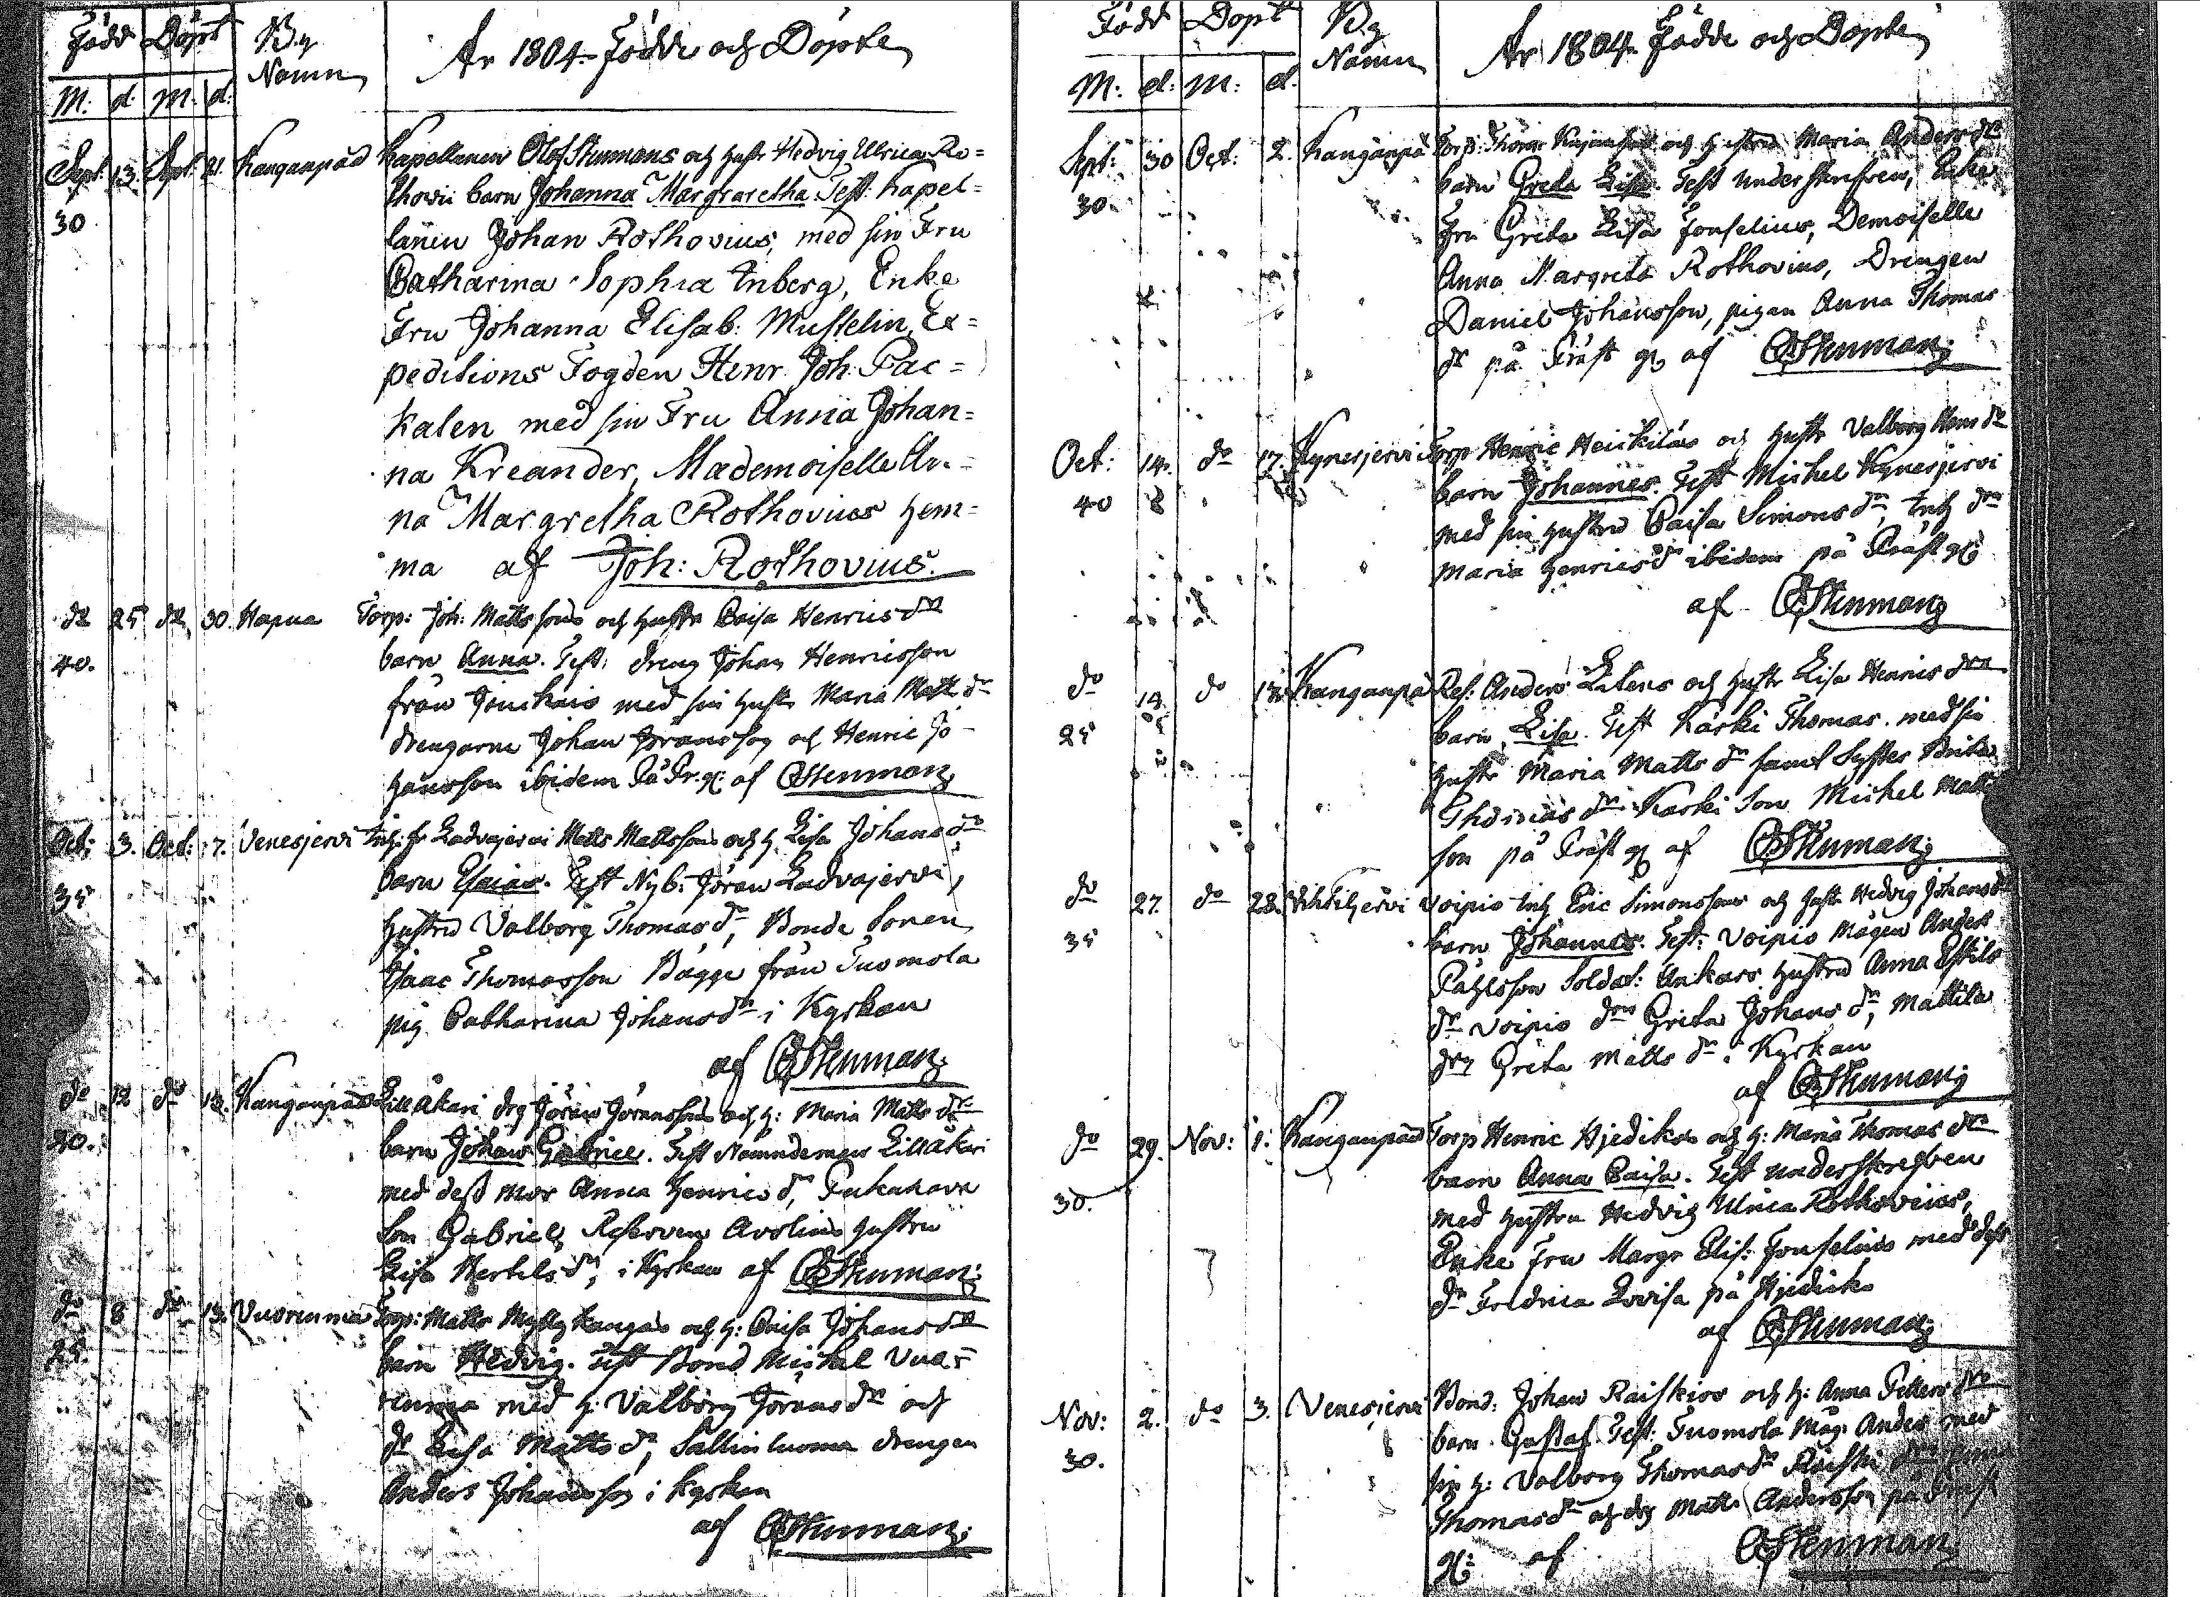 Född Döpt By Namn
År 1804 Födde och Döpte
M: d: M: d:
Sept: 13. Sept: 21. Kanganpää Kapellanen Olof Stenmans och hustr Hedvig Ulrica Ro=
30 thovii barn Johanna Margraretha. Test: Kapel=
lanen Johan Rothovius, med sin Fru
Catharina Sophia Enberg, Enke
Fru Johanna Elisab: Mustelin, Ex=
peditions Fogden Henr. Joh. Pac=
kalen med sin Fru Anna Johan=
na Kreander, Mademoiselle An=
na Margretha Rothovius hem=
ma af Joh: Rothovius.
do 25 do 30. Hapua Torp: Joh: Mattssons och hustr Caisa Henricsdr
40. barn Anna. Test: dreng Johan Henricsson
från med sin hustr Maria Mattsdr
drengarne Johan Jöransson och Henric Jo-
hansson ibidem På Pr. g: af OStenman
Oct: 3. Oct: 7. Venesjervi Inh: fr Ladvajervi Matts Mattssons och h. Lisa Johansdr
35 barn Esaias. Test Nyb: Jöran Ladvajervi,
hustru Valborg Thomasdr, Bonde Sonen
Isaac Thomasson Bägge från Tuomola
pig Catharina Johansdr i Kyrkan
af OStenman.
do 12 do 13. Kanganpää Lilläkari drg Jöran Jöranssons och h: Maria Mattsdr
30. barn Johan Gabriel. Test Nämndeman Lilläkari
med dess mor Anna Henricsdr,
son Gabriel, Reserven hustru
Lisa Bertilsdr, i Kyrkan af OStenman.
do 8 do 13. Vuorenmaa Torp: Matts Myllykangas och h: Caisa Johansdr
25. barn Hedvig. Test Bond Michel Vuo=
renma med h: Valborg Jöransdr och
dr Lisa Mattsdr, Sallinluoma drengen
Anders Johansson i kyrkan
af OStenman.
Född Döpt By Namn
År 1804 Födde och Döpte
M: d: M: d.
Sept: 30 Oct: 2. Kanganpä Torp: Thomas och hustru Maria Andersdr
30. barn Greta Lisa. Test underskrefven, Enke
Fru Greta Lisa Fonselius, Demoiselle
Anna Margreta Rothovius, Drengen
Daniel Johansson, pigan Anna Thomas
dr på Präst g. af OStenman.
Oct: 14. do 17. Kynesjervi Torp Henric Heickiläs och hustr Valborg Hansdr
40 barn Johannes. Test Michel Kynesjervi
med sin hustru Caisa Simonsdr, Inh drn
Maria Henricsdr ibidem på Präst g:
af OStenman
do 14. do 17. Kanganpä Res: Anders och hustr Lisa Henricsdr
25 barn Lisa. Test Käski Thomas med sin
hustr Maria Mattsdr samt Syster Brita
Thomasdr Kaski Son Michel Matts
son på Präst g af OStenman.
do 27. do 28. Vihtiljervi Voipio Inh Eric Simonssons och hustr Hedvig Johansdr
35 barn Johannes. Test: Voipio Mågen Anders
Påhlsson Soldat: Ankars hustru Anna Eskils
dr Voipio drn Greta Johansdr, Mattila
drn Greta Mattsdr i Kyrkan
af OStenman.
do 29. Nov: 1. Kanganpää Torp Henric Hjedikos och h: Maria Thomasdr
30. barn Anna Caisa. Test underskrefven
med hustru Hedvig Ulrica Rothovius,
Enke Fru Margr Elis: Fonselius med dess
dr Fredrica Lovisa på Hjedicko
af OStenman.
Nov: 2. do 3. Venesjervi Bond: Johan Raiskios och h: Anna Pettersdr
30. barn Gustaf. Test: Tuomola Måg: Anders med
sin h: Valborg Thomasdr
Thomasdr och drg Matts Andersson på Präst
g: af OStenman.